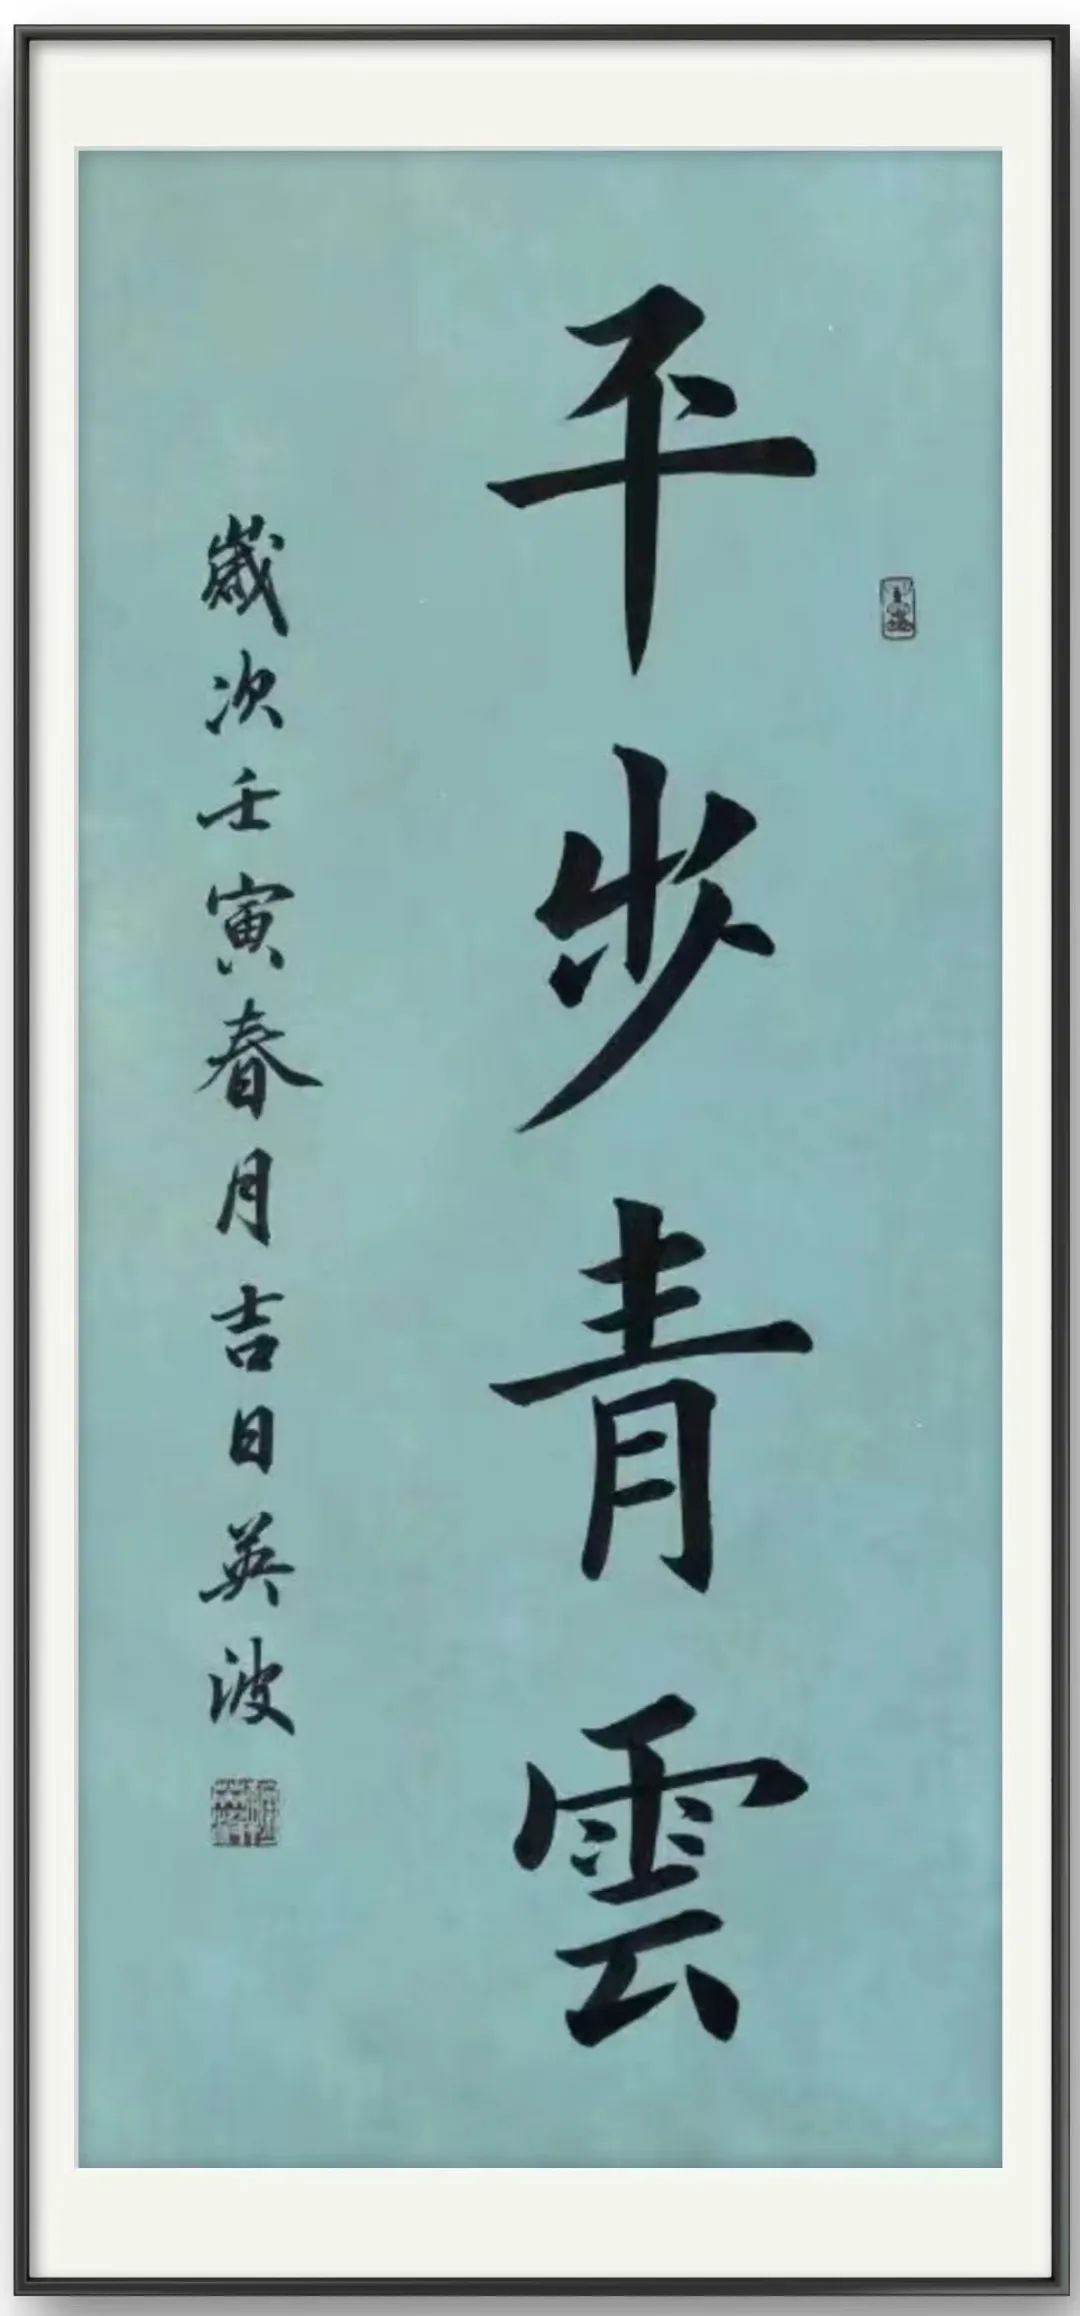 平步青雲
歲次壬寅春月吉日英波